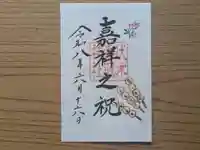 嘉祥之祝
令和八年六月十六日